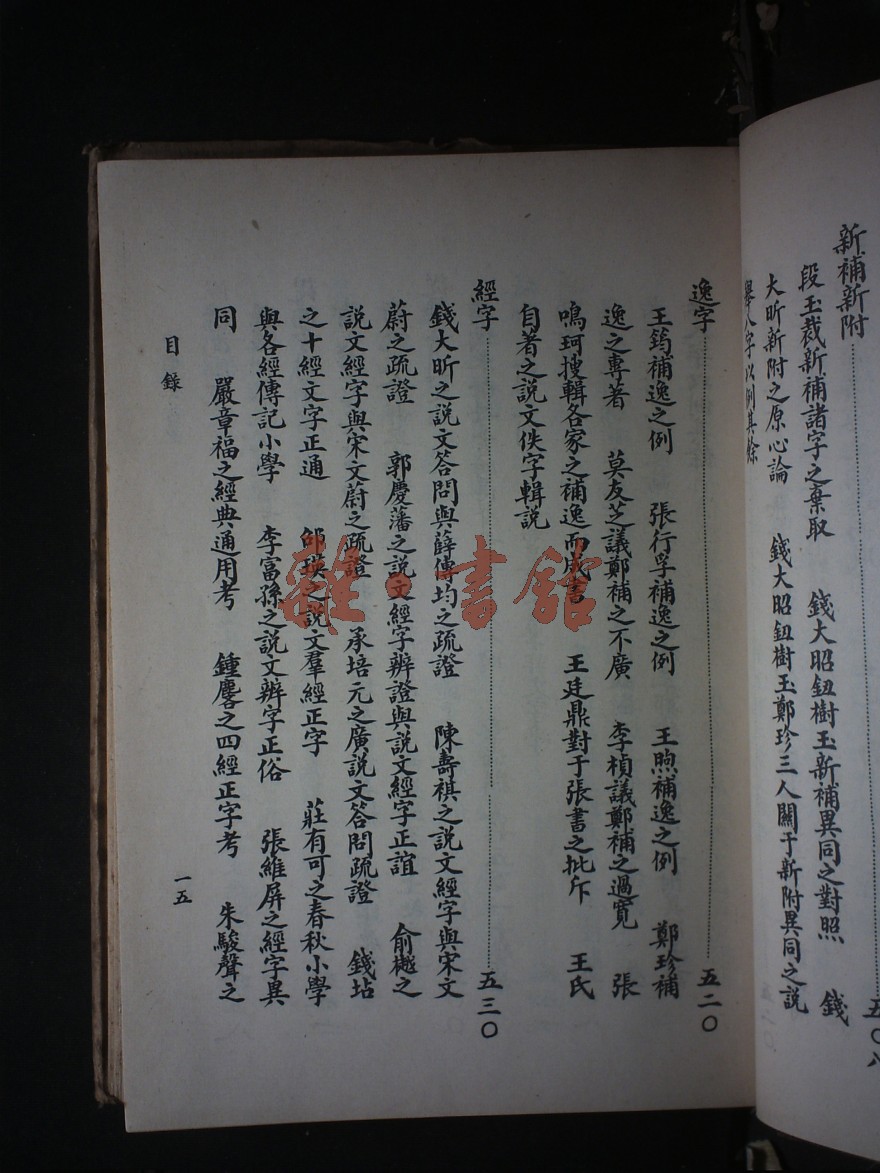 新補新附……五〇八
段玉裁新補諸字之棄取　錢大昭鈕樹玉新補異同之對照　錢
大昕新附之原心論　錢大昭鈕樹玉鄭珍三人關于新附異同之說
舉八字以例其餘
逸字……五二〇
王筠補逸之例　張行孚補逸之例　王煦補逸之例　鄭珍補
逸之專著　莫友芝議鄭補之不廣　李楨議鄭補之過寬　張
鳴珂搜輯各家之補逸而成書　王廷鼎對于張書之批斥　王氏
自著之說文佚字輯說
經字……五三〇
錢大昕之說文答問與薛傳均之疏證　陳壽祺之說文經字與宋文
蔚之疏證　郭慶藩之說文經字辨證與說文經字正誼　俞樾之
說文經字與宋文蔚之疏證　承培元之廣說文答問疏證　錢坫
之十經文字正通　邵瑛之說文羣經正字　莊有可之春秋小學
與各經傳記小學　李富孫之說文辨字正俗　張維屏之經字異
同　嚴章福之經典通用考　鍾麐之四經正字考　朱駿聲之
目錄
一五
雜·書館